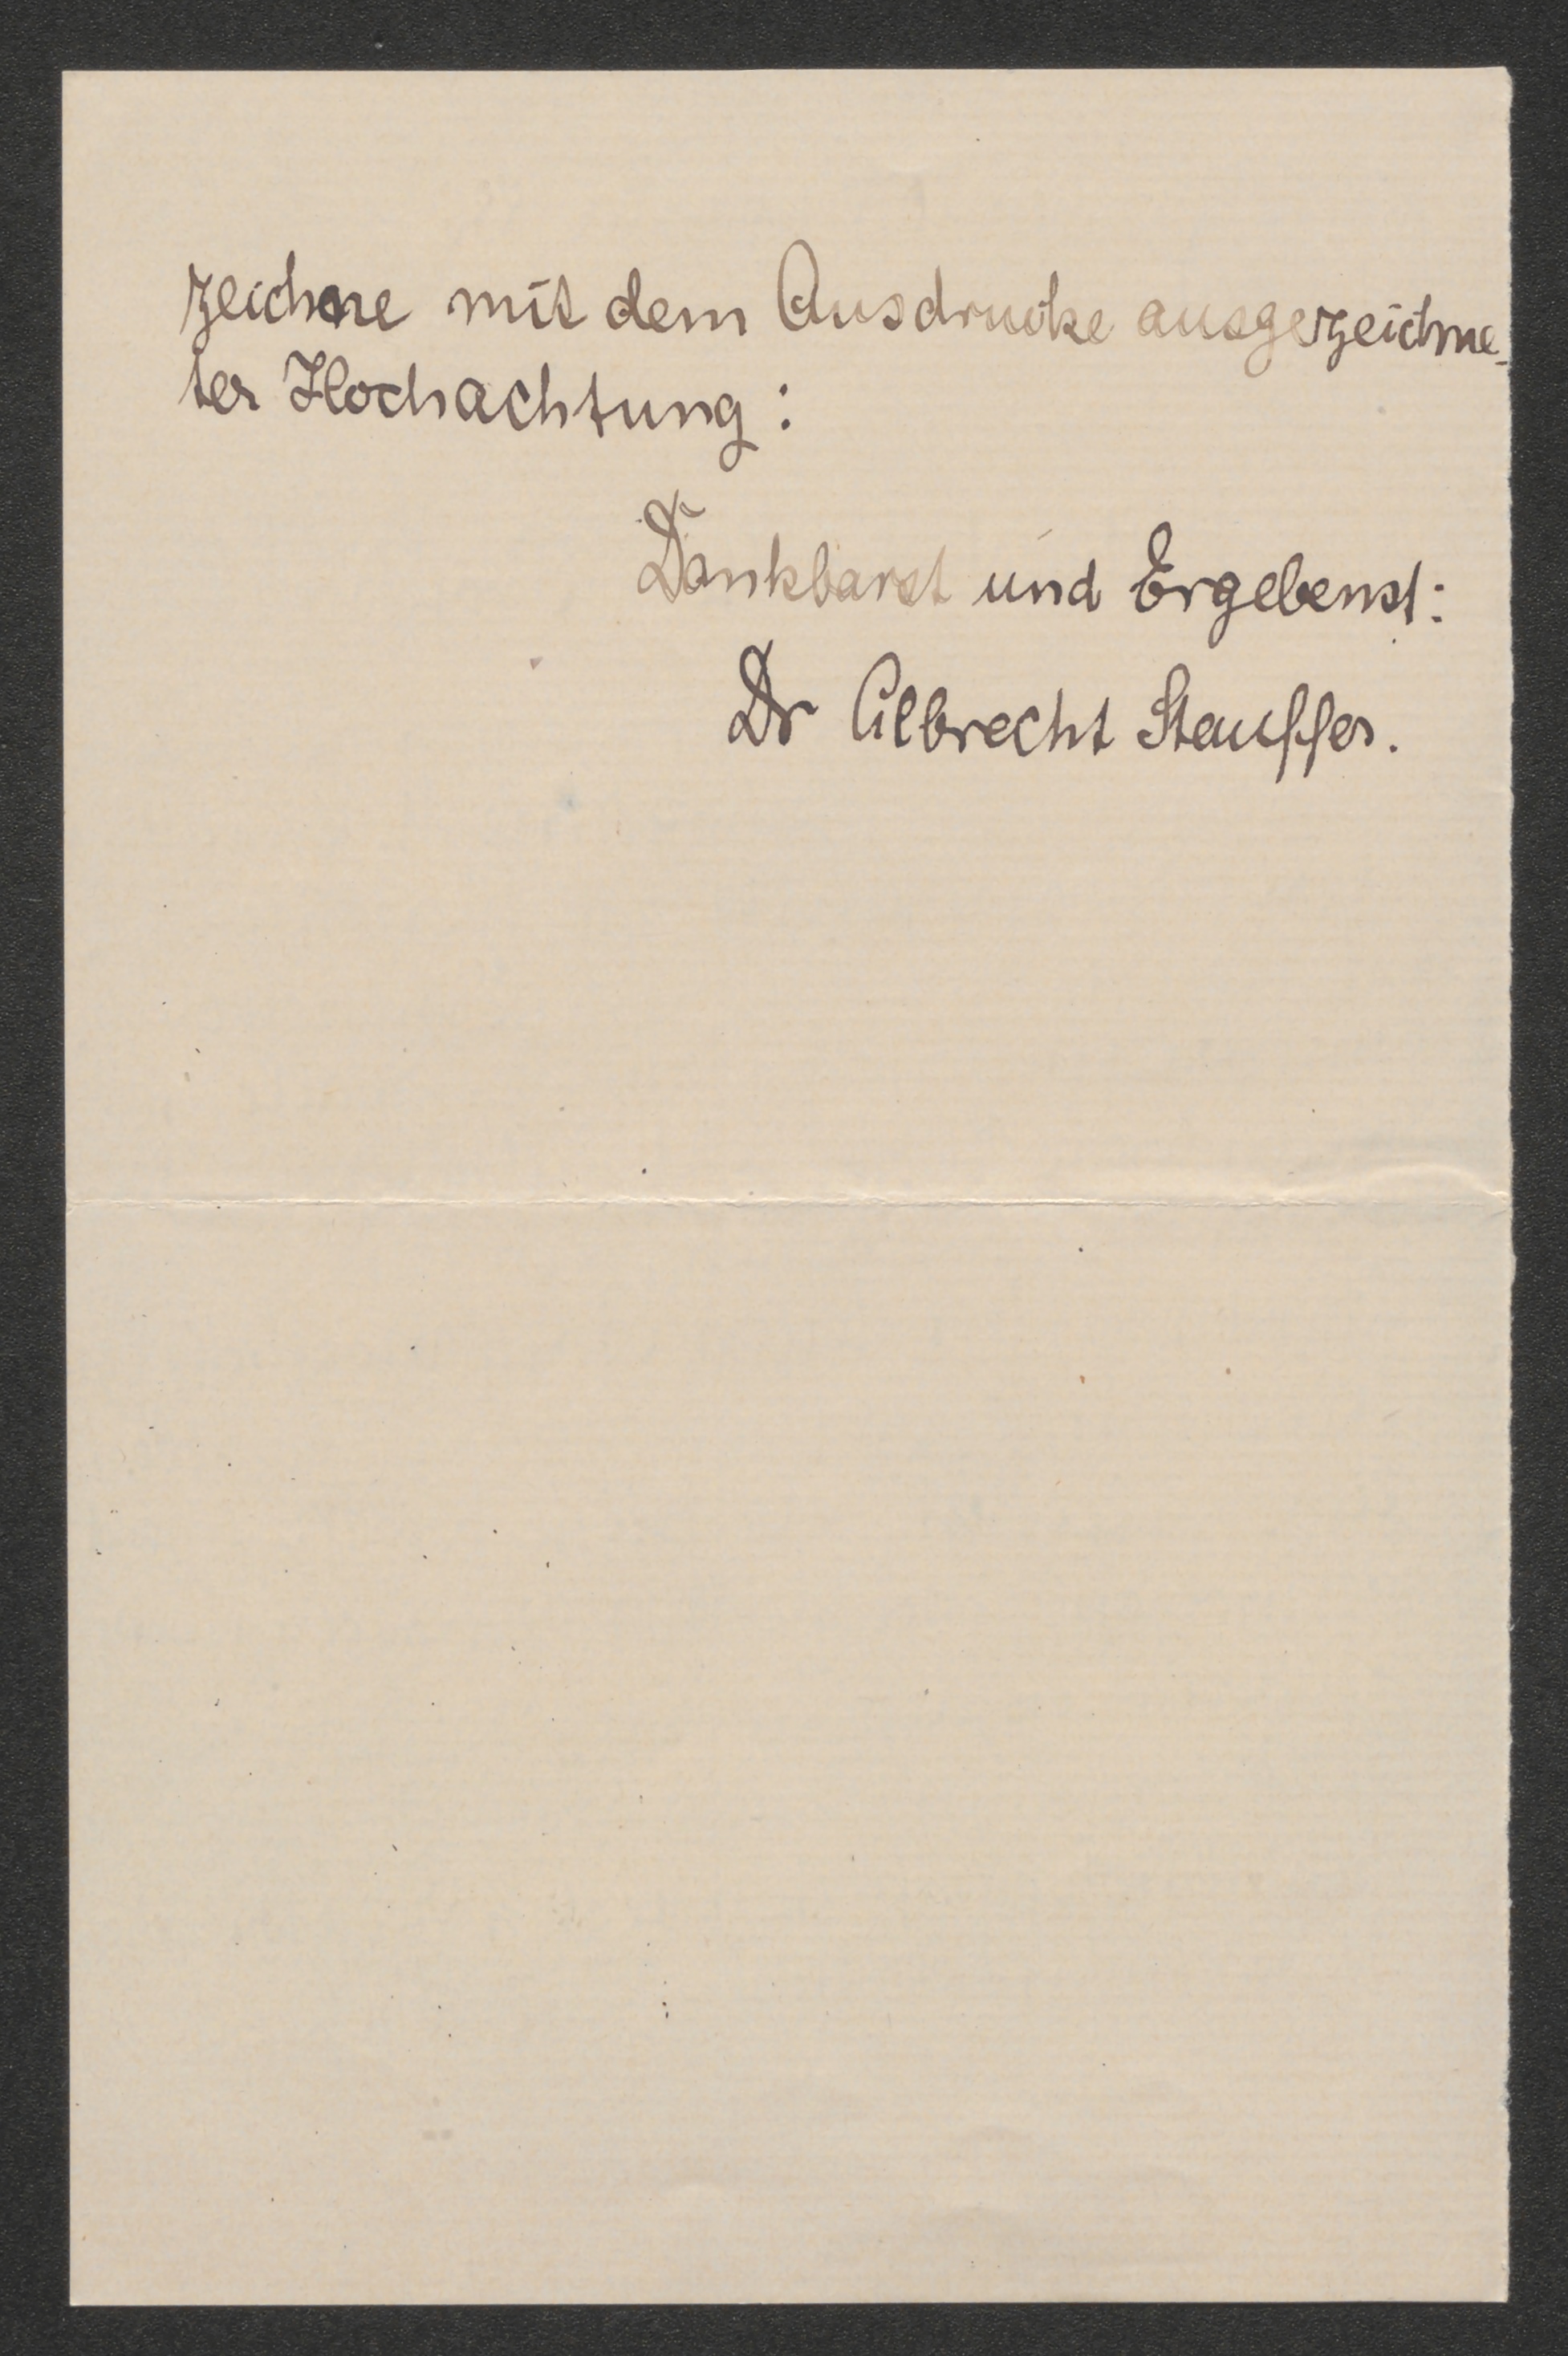 zeichne mit dem Ausdrucke ausgezeichne-
ter Hochachtung:
Dankbarst und Ergebenst:
Dr Albrecht Stauffer.